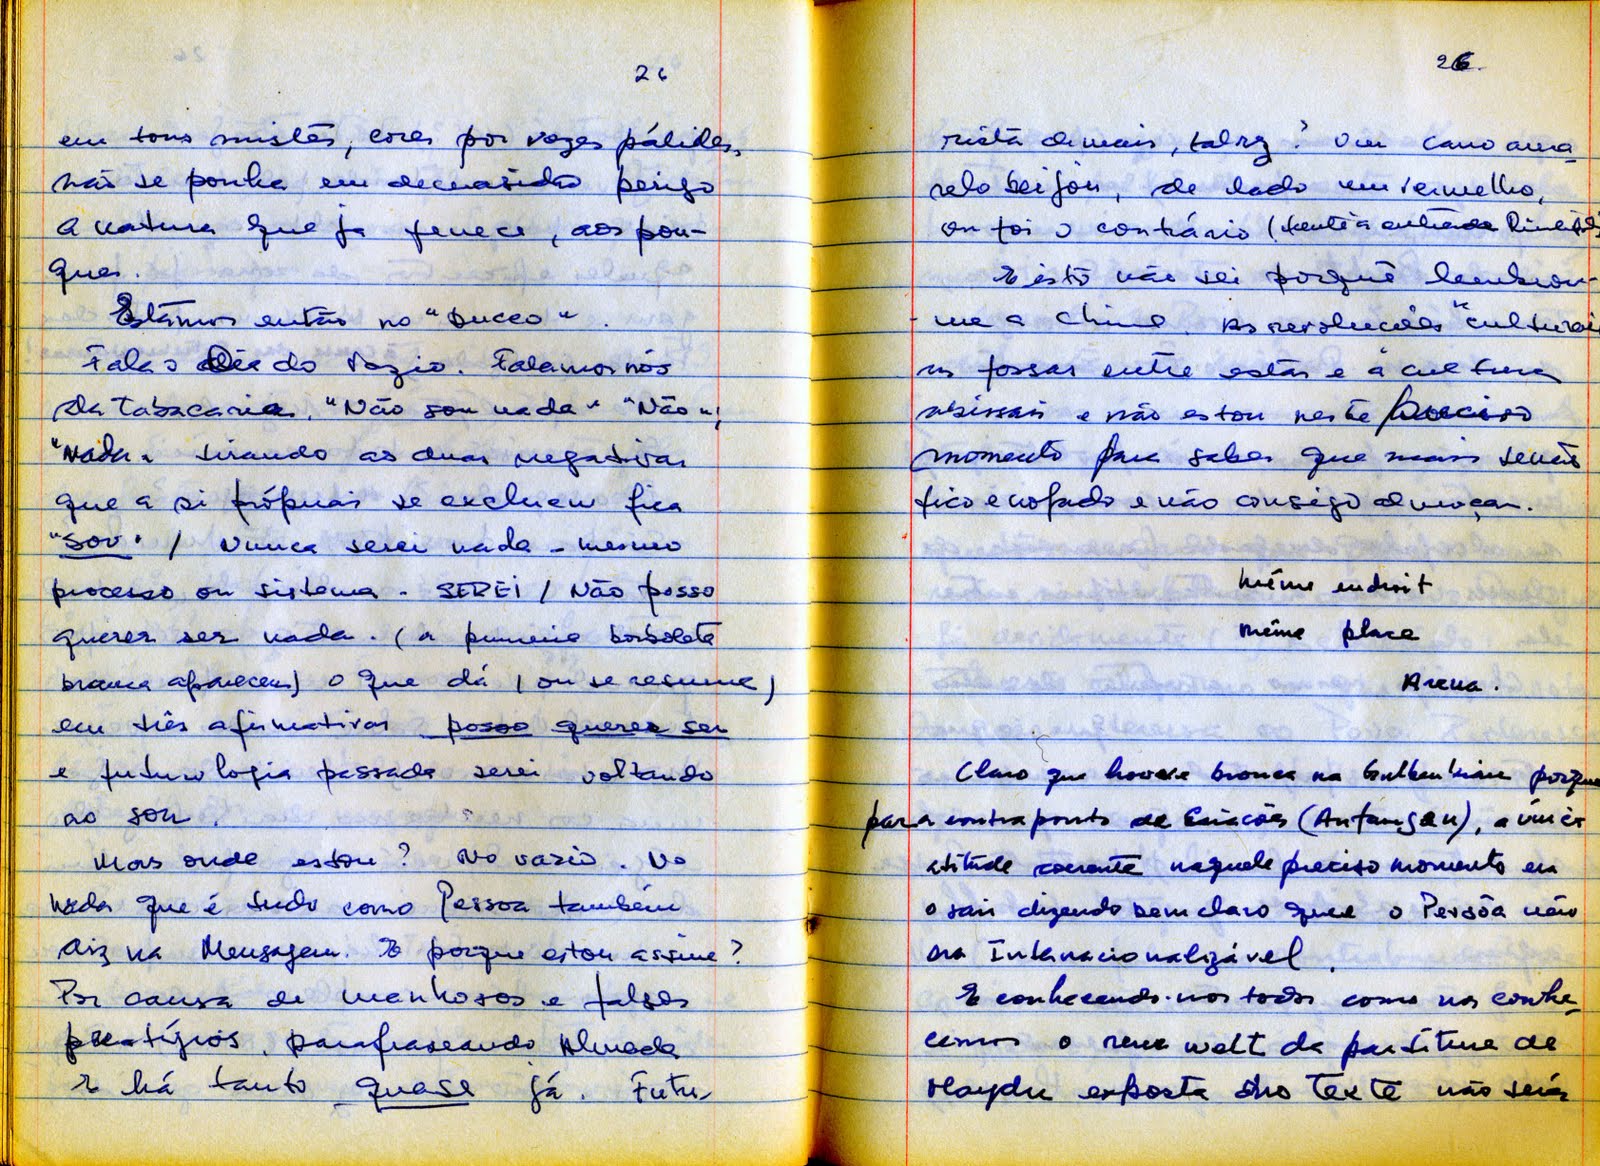 26
em tons mistos, cores por vezes pálidas,
não se ponha em demasiado perigo
a natura que já fenece, aos pou-
ques.
Estamos então no "Buceo".
Fala o do Vazio. Falamos nós
da Tabacaria. "Não sou nada" "Não",
"Nada" tirando as duas negativas
que a si próprias se excluem fica
"SOU" / Nunca serei nada - mesmo
processo ou sistema - SEREI / Não posso
querer ser nada. (a primeira borboleta
branca apareceu) o que dá (ou se resume)
em três afirmativas posso querer ser
e futurologia passada serei voltando
ao sou.
Mas onde estou? No vazio. No
Nada que é tudo como Pessoa também
diz na Mensagem. E porque estou assim?
Por causa de manhosos e falsos
prestígios, parafraseando Almada
E há tanto quase já. Futu-
26
rista demais, talvez? Um carro ama-
relo beijou, de lado um vermelho,
ou foi o contrário (frente à entrada
E isto não sei porquê lembrou-
-me a China. As revoluções "culturais
as fossas entre estas e a cultura
abissais e não estou neste preciso
momento para saber que mais senão
fico enofado e não consigo almoçar.
même endroit
même place
Arena.
Claro que houve bronca na Gulbenkian porque
para contraponto de Criações (Anfangen), a única
atitude coerente naquele preciso momento era
o sair dizendo bem claro que o Persôa não
era Internacionalizável.
E conhecendo-nos todos como nos conhe-
cemos o welt da partitura de
Haydn exposta no Texte não será